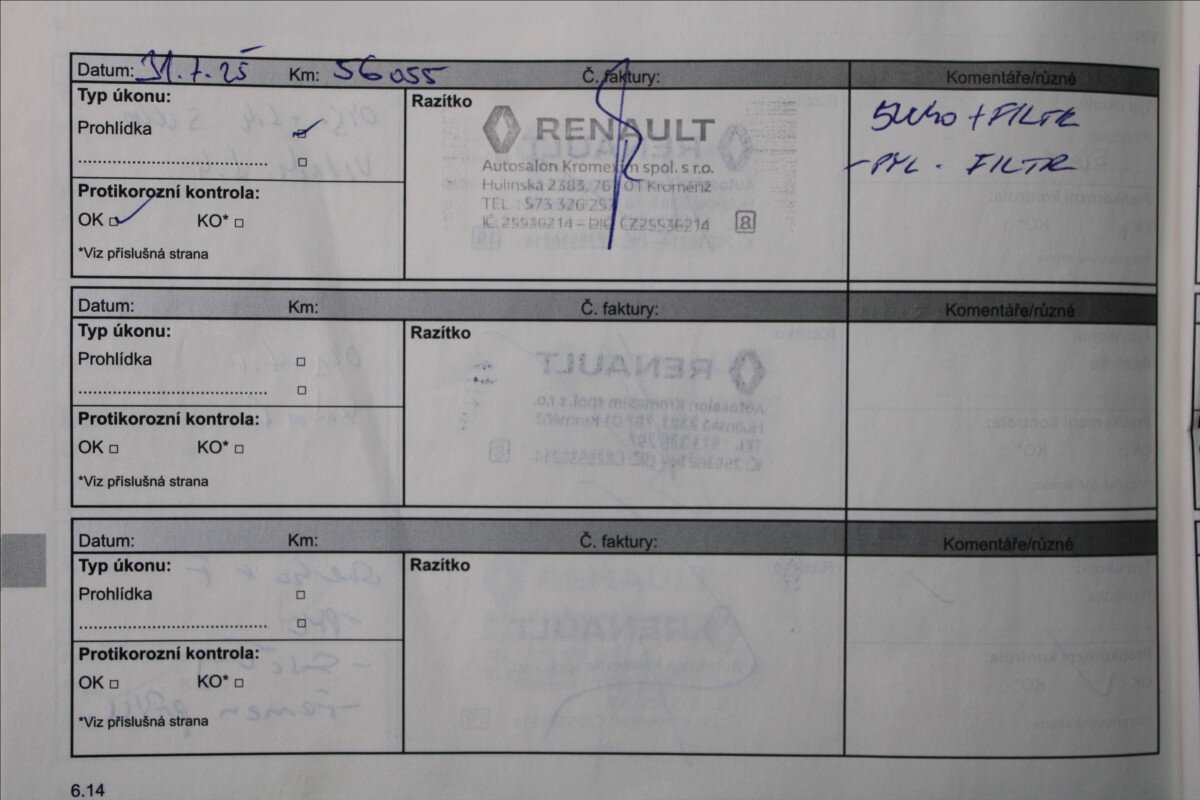 Datum: 31.7.25 Km: 56055 Č. faktury: Komentáře/různé
Typ úkonu:
Prohlídka
Protikorozní kontrola:
OK KO*
*Viz příslušná strana
Razítko
RENAULT
Autosalon Kromexim spol. s r.o.
Hulínská 2383, 767 01 Kroměříž
TEL. 573 326 257
IČ: 25536214 – DIČ: CZ25536214 8
+ FILTR
- PYL. FILTR
Datum: Km: Č. faktury: Komentáře/různé
Typ úkonu:
Prohlídka
Protikorozní kontrola:
OK KO*
*Viz příslušná strana
Razítko
Datum: Km: Č. faktury: Komentáře/různé
Typ úkonu:
Prohlídka
Protikorozní kontrola:
OK KO*
*Viz příslušná strana
Razítko
6.14